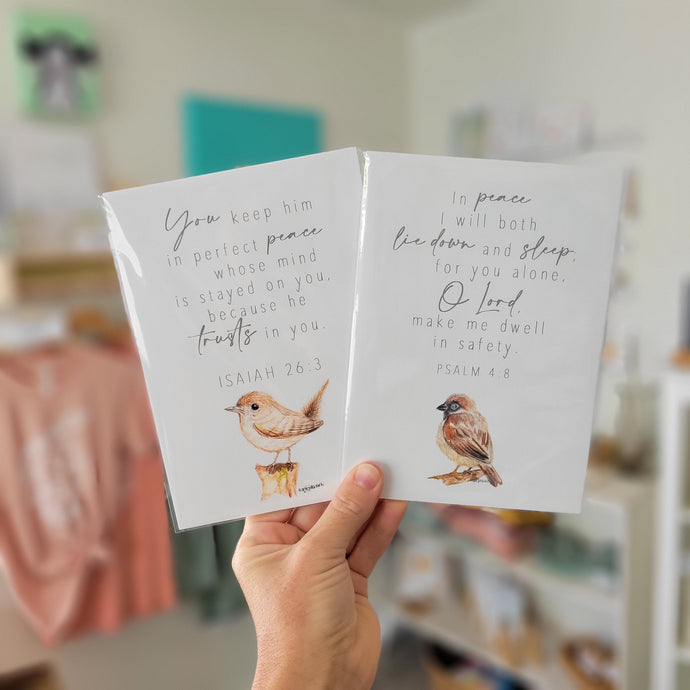 You keep him
in perfect peace
whose mind
is stayed on you,
because he
trusts in you.
ISAIAH 26:3
In peace
I will both
lie down and sleep,
for you alone,
O Lord,
make me dwell
in safety.
PSALM 4:8